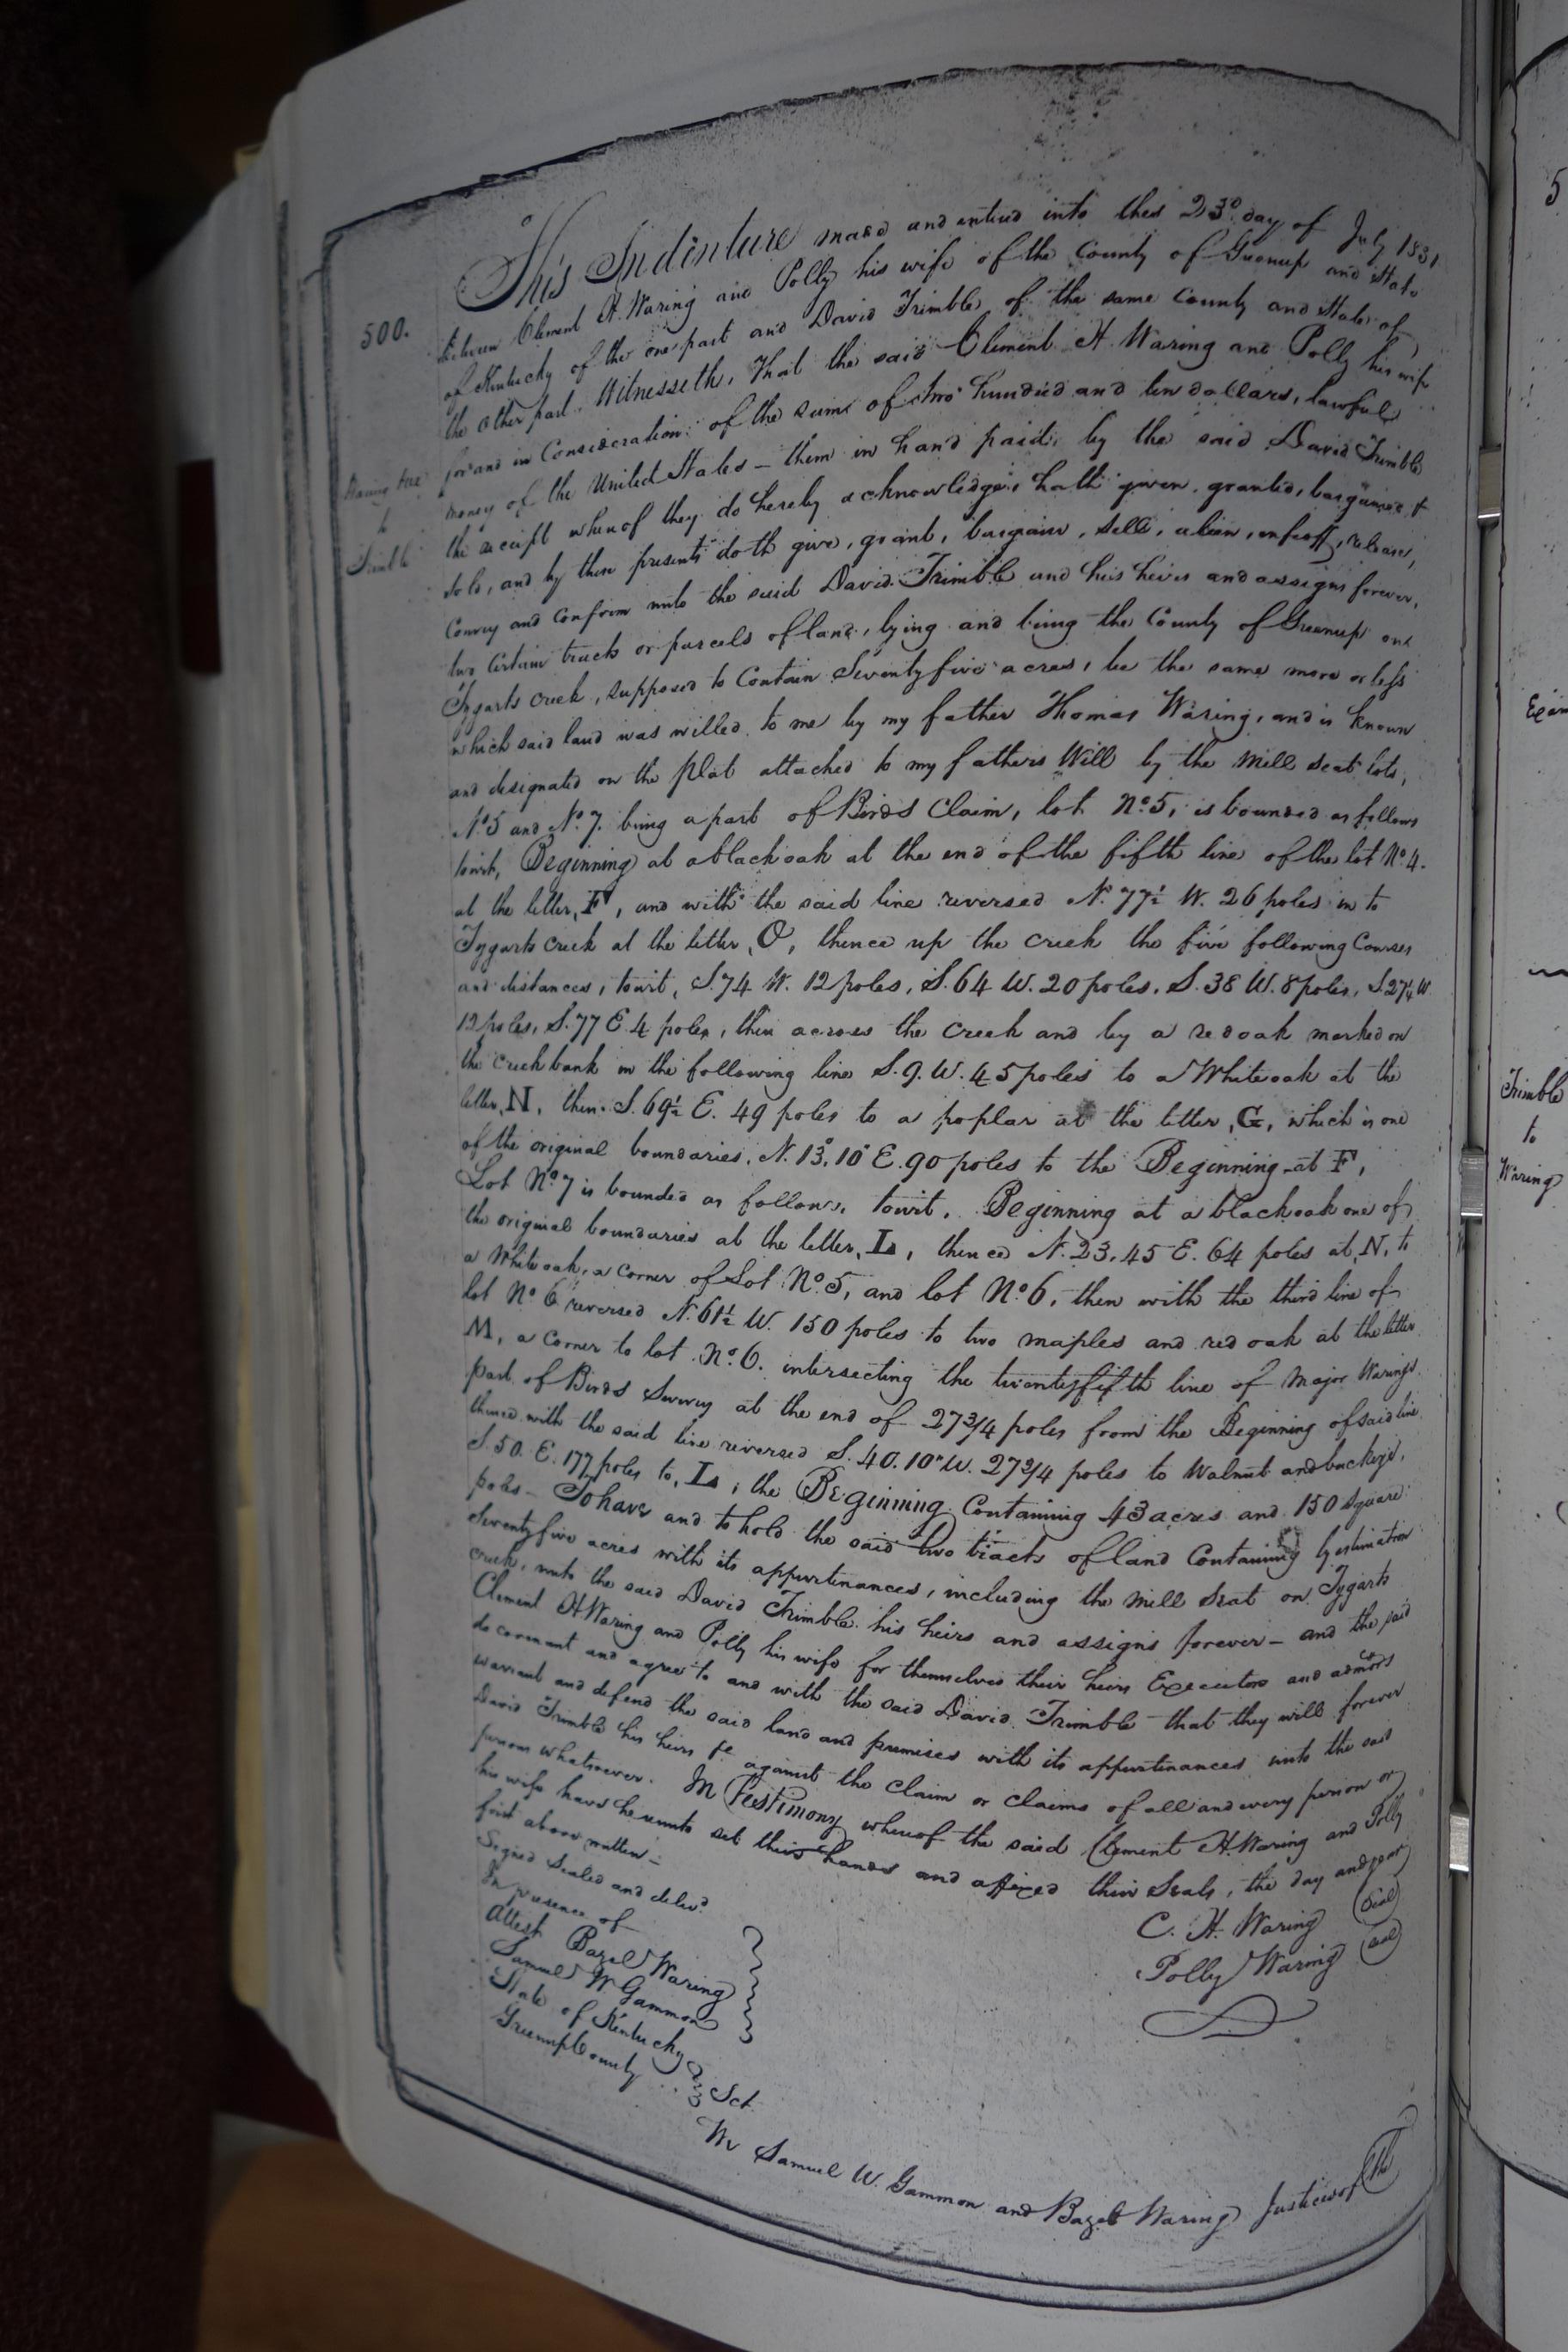 500.
This Indenture made and entered into this 23d day of July 1831
between Clement H. Waring and Polly his wife of the County of Greenup and State
of Kentucky of the one part and David Trimble of the same County and State of
the other part. Witnesseth, That the said Clement H. Waring and Polly his wife
for and in Consideration of the sum of two hundred and ten dollars, lawful
Waring &c
to
Trimble
money of the United States – them in hand paid, by the said David Trimble
the receipt whereof they do hereby acknowledge, hath given, granted, bargained &
sold, and by these presents doth give, grant, bargain, sell, alien, enfeoff, release,
Convey and confirm unto the said David Trimble and his heirs and assigns forever,
two certain tracts or parcels of land, lying and being the County of Greenup on
Tygarts creek, supposed to Contain Seventy five acres, be the same more or less
which said land was willed to me by my father Thomas Waring, and is known
and designated on the plat attached to my fathers Will by the Mill seat lots,
No 5 and No. 7. being a part of Birds Claim, lot No. 5, is bounded as follows
towit, Beginning at a black oak at the end of the fifth line of the lot No. 4.
at the letter, F, and with the said line reversed N. 77½ W. 26 poles in to
Tygarts creek at the letter, O, thence up the creek the five following Courses
and distances, towit, S. 74 W. 12 poles, S. 64 W. 20 poles, S. 38 W. 8 poles, S. 27¼ W
12 poles, S. 77 E. 4 poles, then across the creek and by a red oak marked on
the creek bank in the following line S. 9. W. 45 poles to a White oak at the
letter, N, then S. 69½ E. 49 poles to a poplar at the letter, G, which is one
of the original boundaries, N. 13°, 10' E. 90 poles to the Beginning at F,
Lot No. 7 is bounded as follows, towit. Beginning at a black oak one of
the original boundaries at the letter, L, thence N. 23, 45 E. 64 poles at, N, to
a White oak, a corner of Lot No. 5, and lot No. 6, then with the third line of
lot No 6 reversed N. 61½ W. 150 poles to two maples and red oak at the letter
M, a corner to lot No. 6. intersecting the twentyfifth line of Major Warings
part of Birds Survey at the end of 27 3/4 poles from the Beginning of said line
thence with the said line reversed S. 40. 10" W. 27 3/4 poles to Walnut and buckeye,
S. 50. E. 177 poles to, L, the Beginning Containing 43 acres and 150 Square
poles – To have and to hold the said two tracts of land Containing by estimation
Seventy five acres with its appurtenances, including the Mill Seat on Tygarts
creek, unto the said David Trimble his heirs and assigns forever – and the said
Clement H Waring and Polly his wife for themselves their heirs Executors and admors
do covenant and agree to and with the said David Trimble that they will forever
warrant and defend the said land and premises with its appurtenances unto the said
David Trimble his heirs &c against the claim or claims of all and every person or
persons whatsoever. In Testimony whereof the said Clement H Waring and Polly
his wife have hereunto set their hands and affixed their Seals, the day and year
first above written –
Signed Sealed and delivd.
In presence of
Attest Bazel Waring
Samuel W Gammon
C. H. Waring (Seal)
Polly Waring (Seal)
State of Kentucky
Greenup County Sct.
We Samuel W. Gammon and Bazel Waring Justices of the
5
Trimble
to
Waring